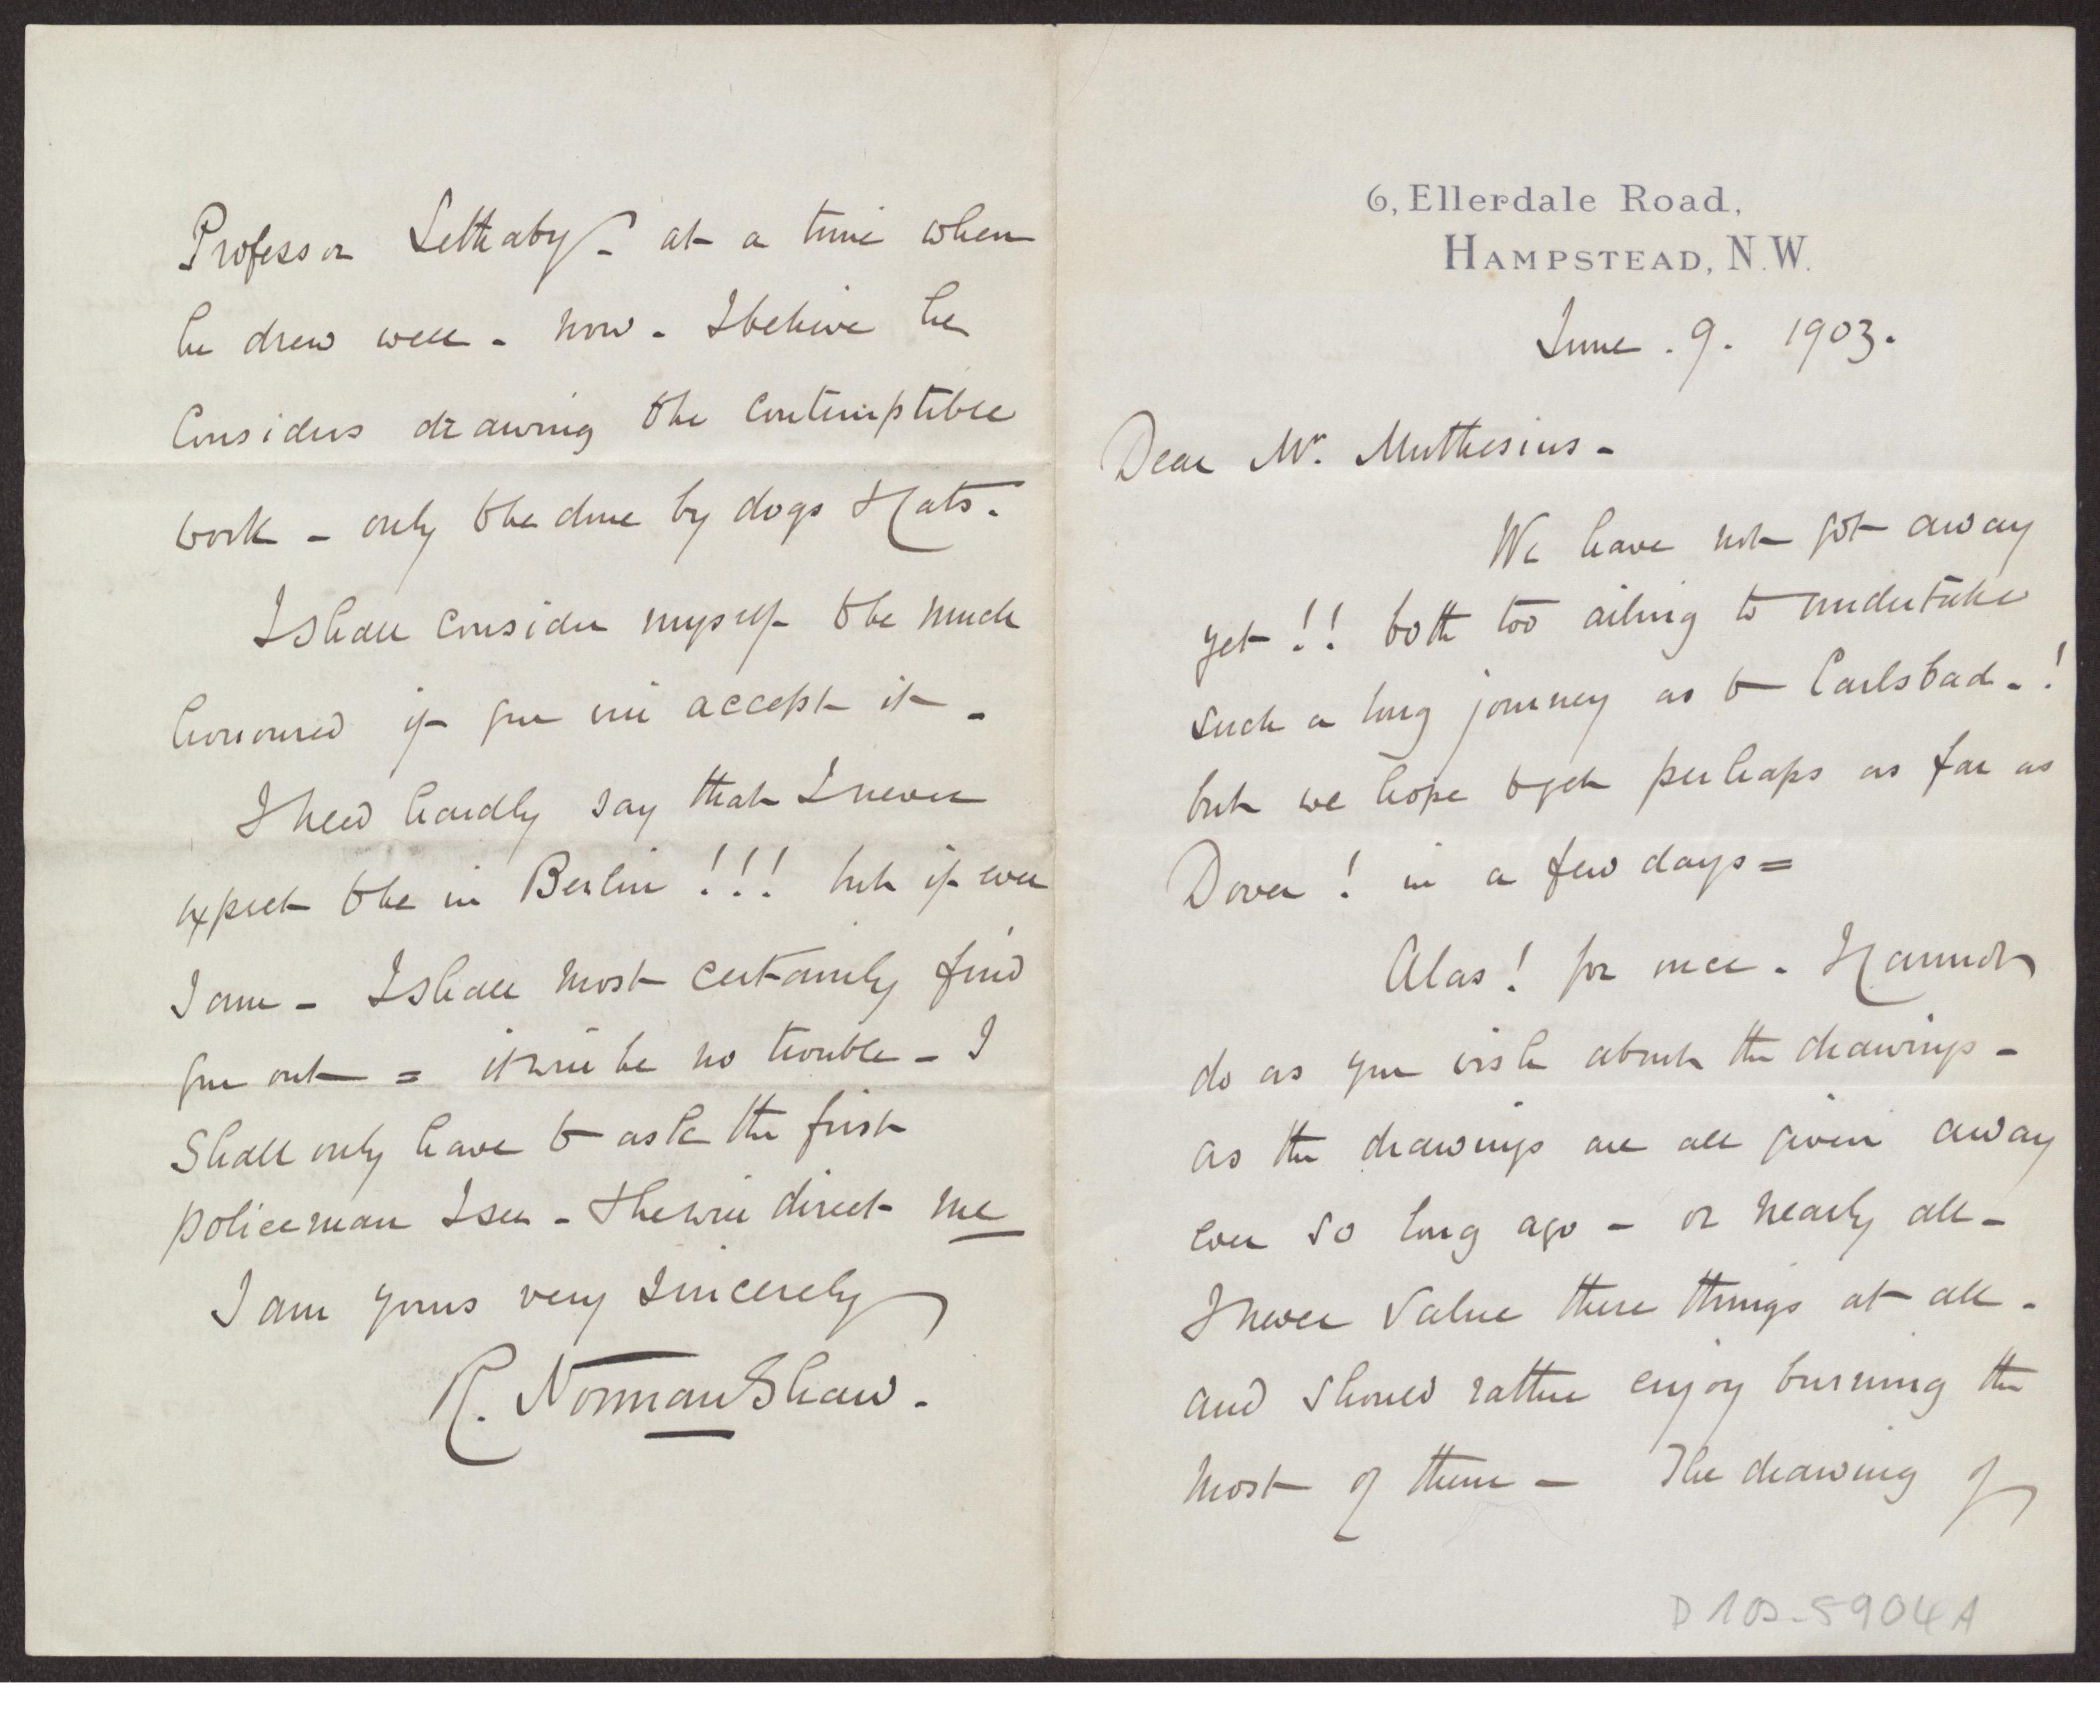 6, Ellerdale Road,
HAMPSTEAD, N.W.
June . 9 . 1903.
Dear Mr. Muthesius -
We have not got away
yet !! both too ailing to undertake
such a long journey as to Carlsbad - !
but we hope to get perhaps as far as
Dover ! in a few days =
Alas ! for once - I cannot
do as you wish about the drawings -
as the drawings are all given away
ever so long ago - or nearly all -
I never value these things at all -
and should rather enjoy burning the
most of them - The drawing of
D 102-5904 A
Professor Lethaby - at a time when
he drew well - now - I believe he
considers drawing to be contemptible
work - only to be done by dogs & cats.
I shall consider myself to be much
honoured if you will accept it -
I need hardly say that I never
expect to be in Berlin !!! but if ever
I am - I shall most certainly find
you out = it will be no trouble - I
shall only have to ask the first
policeman I see - & he will direct me
I am yours very sincerely
R. Norman Shaw.